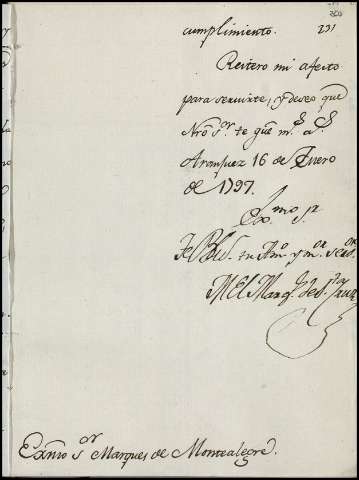 cumplimiento.
231
Reitero mi afecto
para servirte, y deseo que
Nrõ s.r te gûe m.s a.s
Aranjuez 16 de Enero
de 1797.
Ex.mo s.r
Te B. tu Am.o y m.or ser.or
El Marq.s de S.ta Cruz
Exmõ s.or Marques de Montealegre.